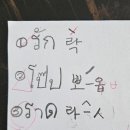 ① รัก 락
② โป๊ป 뽀-옵
③ ราด 라-ㅅ